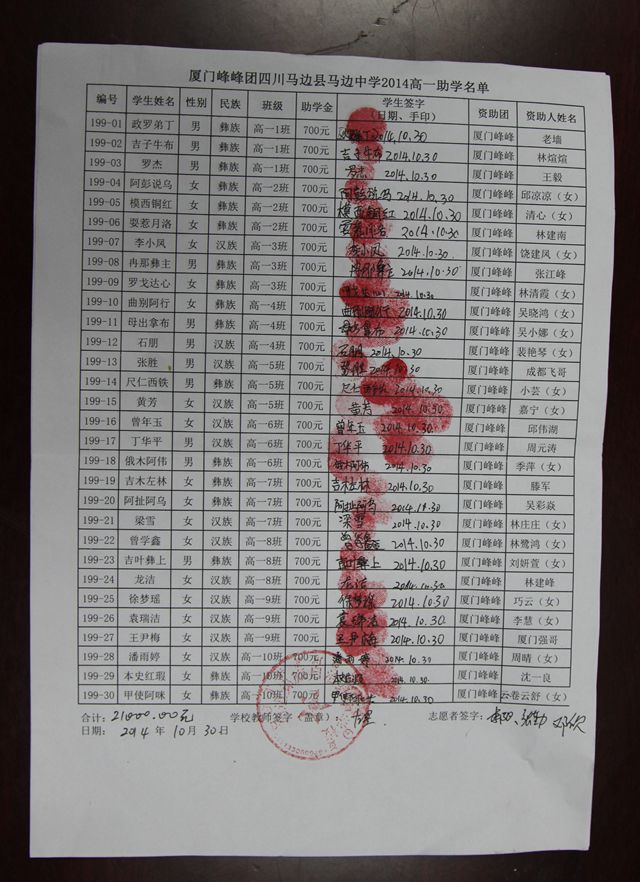 厦门峰峰团四川马边县马边中学2014高一助学名单
编号 学生姓名 性别 民族 班级 助学金 学生签字（日期、手印） 资助团 资助人姓名
199-01 政罗弟丁 男 彝族 高一1班 700元 2014.10.30 厦门峰峰 老墙
199-02 吉子牛布 男 彝族 高一1班 700元 吉子牛布 2014.10.30 厦门峰峰 林煊煊
199-03 罗杰 男 彝族 高一1班 700元 罗杰 2014.10.30 厦门峰峰 王毅
199-04 阿彭说乌 女 彝族 高一2班 700元 阿彭说乌 2014.10.30 厦门峰峰 邱凉凉（女）
199-05 模西铜红 女 彝族 高一2班 700元 模西铜红 2014.10.30 厦门峰峰 清心（女）
199-06 耍惹月洛 女 彝族 高一2班 700元 2014.10.30 厦门峰峰 林建南
199-07 李小凤 女 汉族 高一3班 700元 李小凤 2014.10.30 厦门峰峰 饶建风（女）
199-08 冉那彝主 男 彝族 高一3班 700元 冉那彝主 2014.10.30 厦门峰峰 张江峰
199-09 罗戈达心 女 彝族 高一3班 700元 2014.10.30 厦门峰峰 林清霞（女）
199-10 曲别阿行 女 彝族 高一4班 700元 曲别阿行 2014.10.30 厦门峰峰 吴晓鸿（女）
199-11 母出拿布 男 彝族 高一4班 700元 母出拿布 2014.10.30 厦门峰峰 吴小娜（女）
199-12 石朋 男 汉族 高一4班 700元 石朋 2014.10.30 厦门峰峰 裴艳琴（女）
199-13 张胜 男 汉族 高一5班 700元 张胜 2014.10.30 厦门峰峰 成都飞哥
199-14 尺仁西铁 男 彝族 高一5班 700元 2014.10.30 厦门峰峰 小芸（女）
199-15 黄芳 女 汉族 高一5班 700元 黄芳 2014.10.30 厦门峰峰 嘉宁（女）
199-16 曾年玉 女 汉族 高一6班 700元 曾年玉 2014.10.30 厦门峰峰 邱伟湖
199-17 丁华平 男 汉族 高一6班 700元 丁华平 2014.10.30 厦门峰峰 周元涛
199-18 俄木阿伟 男 彝族 高一6班 700元 俄木阿伟 2014.10.30 厦门峰峰 季萍（女）
199-19 吉木左林 女 彝族 高一7班 700元 吉木左林 2014.10.30 厦门峰峰 滕军
199-20 阿扯阿乌 女 彝族 高一7班 700元 阿扯阿乌 2014.10.30 厦门峰峰 吴彩焱
199-21 梁雪 女 汉族 高一7班 700元 梁雪 2014.10.30 厦门峰峰 林庄庄（女）
199-22 曾学鑫 女 汉族 高一8班 700元 曾学鑫 2014.10.30 厦门峰峰 林鹭鸿（女）
199-23 吉叶彝上 男 彝族 高一8班 700元 吉叶彝上 2014.10.30 厦门峰峰 刘妍萱（女）
199-24 龙洁 女 汉族 高一8班 700元 龙洁 2014.10.30 厦门峰峰 林建峰
199-25 徐梦瑶 女 汉族 高一9班 700元 徐梦瑶 2014.10.30 厦门峰峰 巧云（女）
199-26 袁瑞洁 女 汉族 高一9班 700元 袁瑞洁 2014.10.30 厦门峰峰 李慧（女）
199-27 王尹梅 女 汉族 高一9班 700元 王尹梅 2014.10.30 厦门峰峰 厦门强哥
199-28 潘雨婷 女 彝族 高一10班 700元 潘雨婷 2014.10.30 厦门峰峰 周晴（女）
199-29 本史红瑕 女 彝族 高一10班 700元 2014.10.30 厦门峰峰 沈一良
199-30 甲使阿咪 女 彝族 高一10班 700元 2014.10.30 厦门峰峰 云卷云舒（女）
合计：21000.00元 学校教师签字（盖章）： 志愿者签字：
日期：2014年10月30日